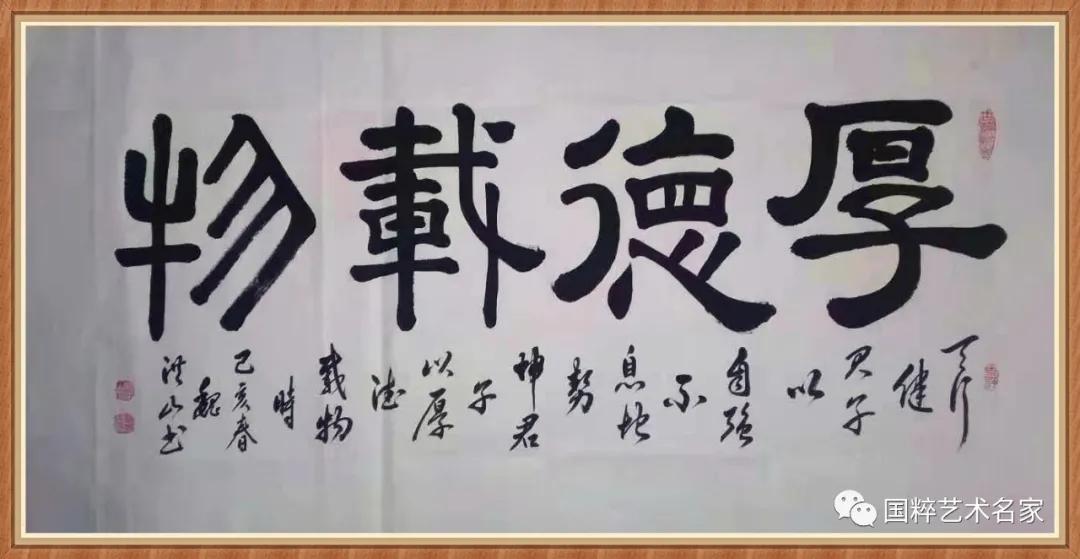 厚德載物
天行
健
君子
以
自强
不
息地
勢
坤君
子
以厚
德
载物
時
己亥春
魏
洪山书
国粹艺术名家